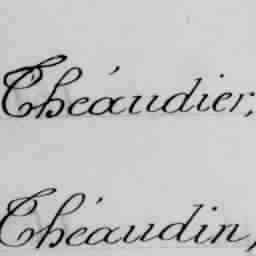 Théaudier,
Théaudin,